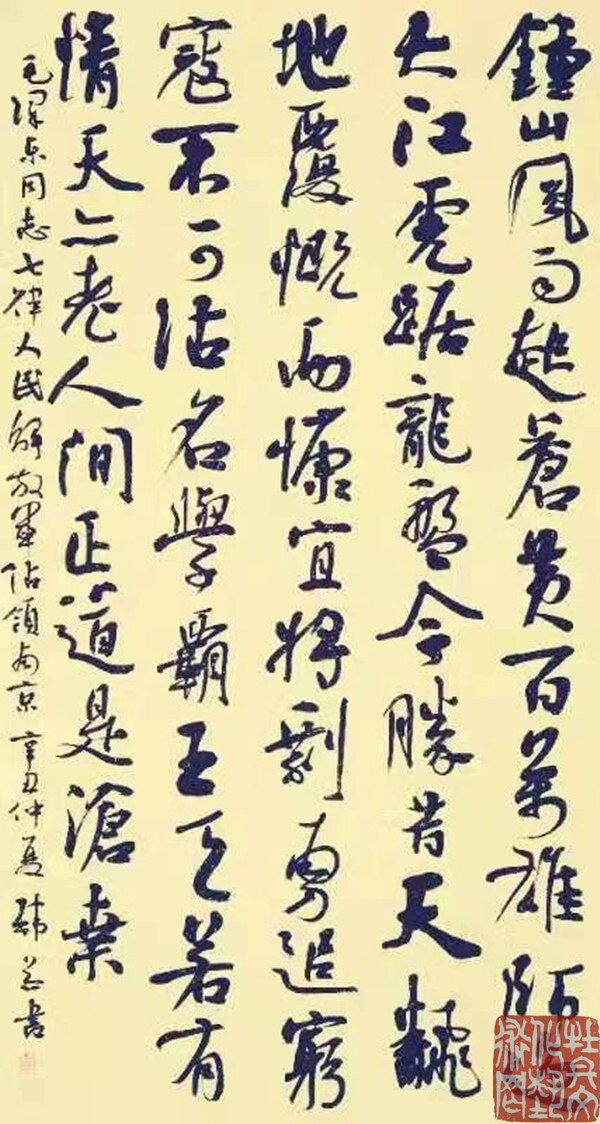 鍾山風雨起蒼黃百萬雄師
大江虎踞龍盤今勝昔天翻
地覆慨而慷宜將剩勇追窮
寇不可沽名學霸王天若有
情天亦老人間正道是滄桑
毛澤东同志七律人民解放軍佔領南京 辛丑仲夏 書